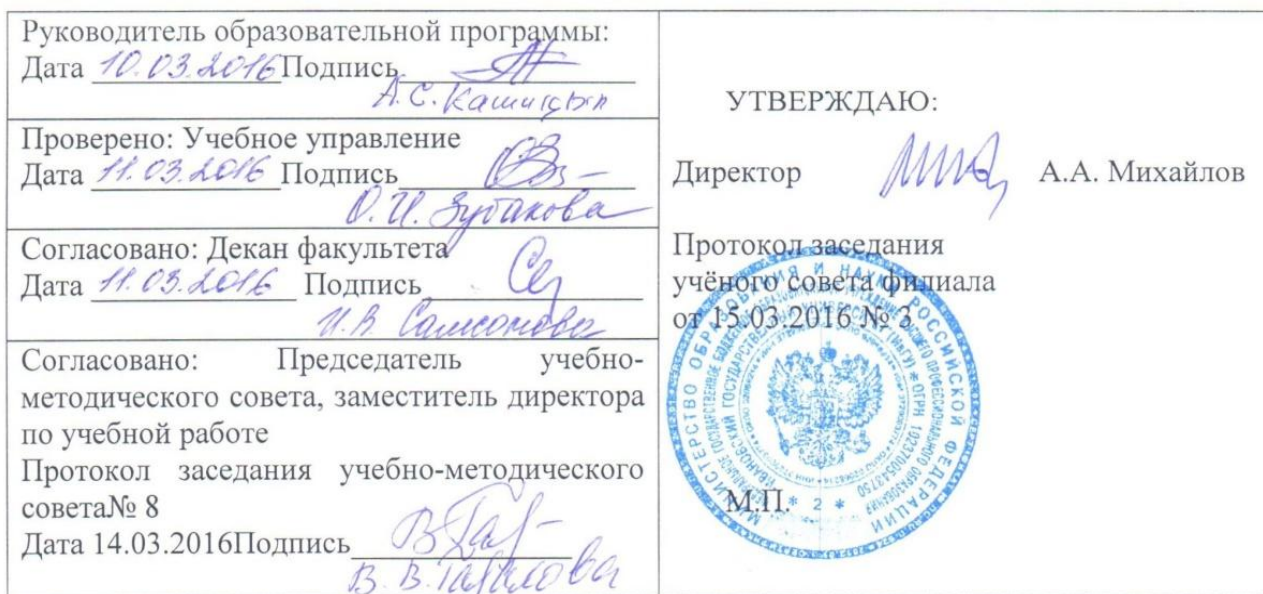 Руководитель образовательной программы:
Дата 10.03.2016 Подпись
А.С. Кашицын
Проверено: Учебное управление
Дата 11.03.2016 Подпись
О.И. Зубакова
Согласовано: Декан факультета
Дата 11.03.2016 Подпись
И.В. Самсонова
Согласовано: Председатель учебно-
методического совета, заместитель директора
по учебной работе
Протокол заседания учебно-методического
совета№ 8
Дата 14.03.2016Подпись
В.В.
УТВЕРЖДАЮ:
Директор А.А. Михайлов
Протокол заседания
учёного совета филиала
от 15.03.2016 № 3
М.П.
МИНИСТЕРСТВО ОБРАЗОВАНИЯ И НАУКИ РОССИЙСКОЙ ФЕДЕРАЦИИ
* 2 *
ИВАНОВСКИЙ ГОСУДАРСТВЕННЫЙ